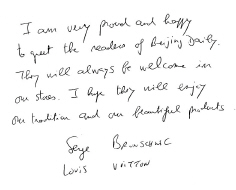 I am very proud and happy
to greet the readers of Beijing Daily.
They will always be welcome in
our stores. I hope they will enjoy
our tradition and our beautiful products.
Serge BRUNSCHWIG
LOUIS VUITTON